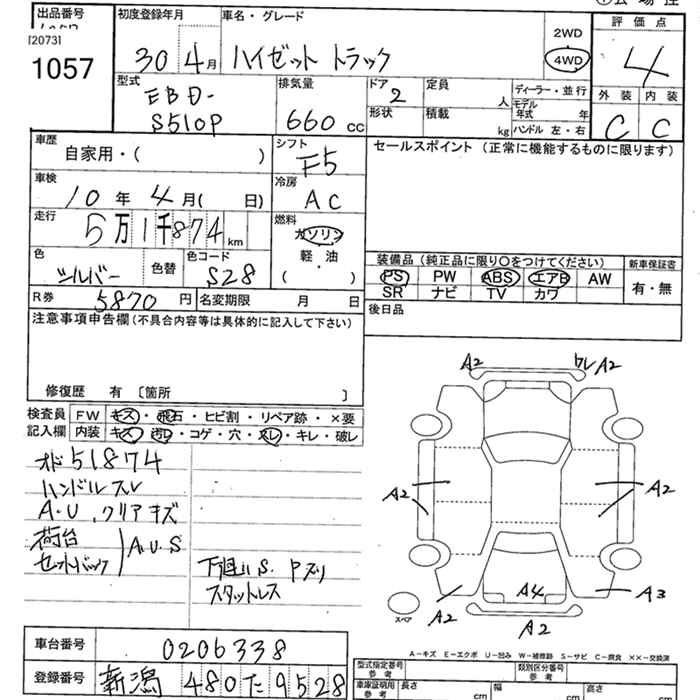 出品番号
[2073]
1057
初度登録年月
30 4月
車名・グレード
ハイゼット トラック
2WD
4WD
評価点
4
外装 内装
C C
型式
EBD-
S510P
排気量
660 CC
ドア
2
形状
定員
人
積載
kg
ディーラー・並行
モデル年式 年
ハンドル 左・右
車歴
自家用・( )
シフト
F5
車検
10年 4月( 日)
冷房
AC
走行
5万1千874 km
燃料
ガソリン
軽油
( )
色
シルバー
色替
色コード
S28
R券
5870円
名変期限 月 日
セールスポイント (正常に機能するものに限ります)
装備品 (純正品に限り○をつけてください)
PS PW ABS エアB AW
SR ナビ TV カワ
新車保証書
有・無
後日品
注意事項申告欄(不具合内容等は具体的に記入して下さい)
修復歴 有 〔箇所 〕
検査員
記入欄
FW キズ・飛石・ヒビ割・リペア跡・×要
内装 キズ・汚レ・コゲ・穴・スレ・キレ・破レ
オド51874
ハンドルスレ
A・U、クリアキズ
荷台
セットバック
A.U.S
下廻りS. Pズリ
スタットレス
A2
ワレ A2
A2
A2
A2
A4
A3
A2
スペア
A−キズ E−エクボ U−凹み W−補修跡 S−サビ C−腐食 ××−交換済
車台番号
0206338
登録番号
新潟 480 た 9528
型式指定番号
参考
類別区分番号
参考
車庫証明用
参考
長さ
cm
幅
cm
高さ
cm